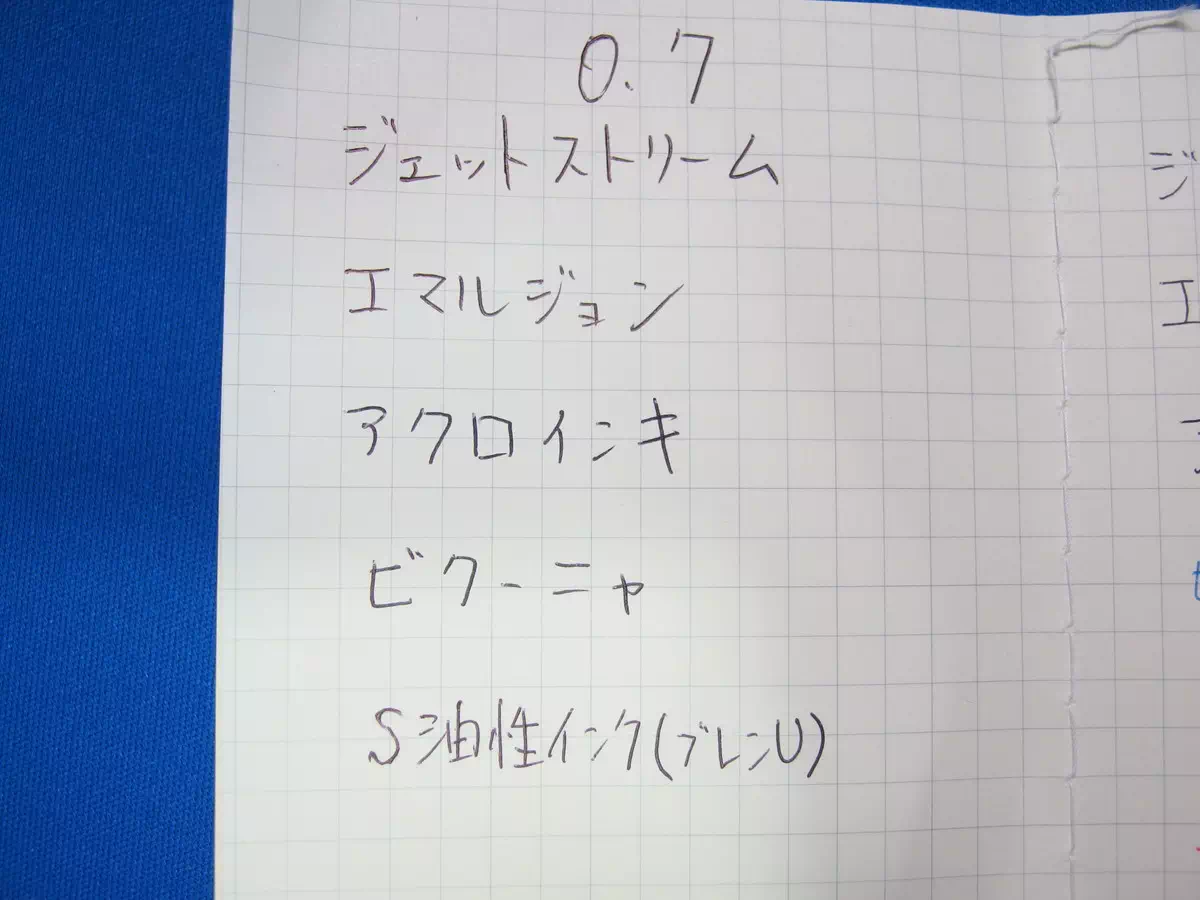 0.7
ジェットストリーム
エマルジョン
アクロインキ
ビクーニャ
S油性インク(ブレンU)
ジ
エ